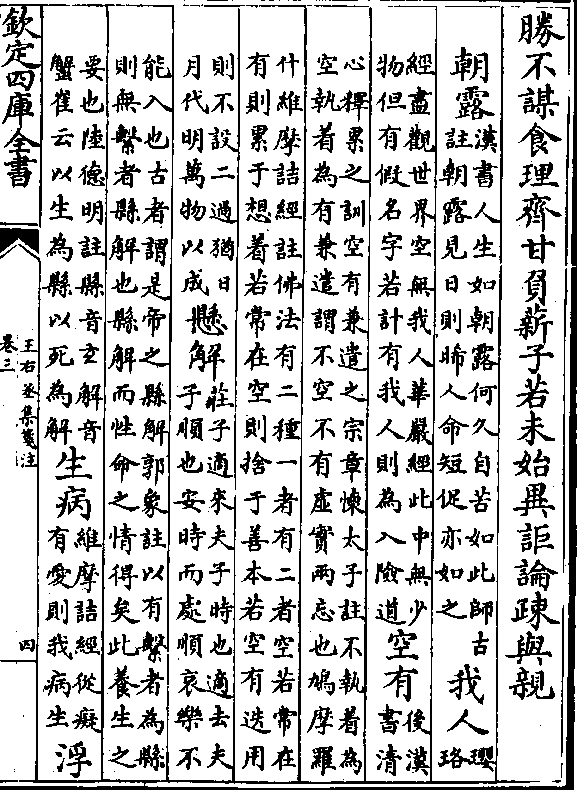 勝不謀食理齊甘負薪子若未始異詎論疎與親
朝露漢書人生如朝露何久自苦如此師古註朝露見日則晞人命短促亦如之我人瓔珞
經盡觀世界空無我人華嚴經此中無少物但有假名字若計有我人則為入險道空有後漢書清
心釋累之訓空有兼遣之宗章懷太子註不執着為空執着為有兼遣謂不空不有虛實兩忘也鳩摩羅
什維摩詰經註佛法有二種一者有二者空若常在有則累于想着若常在空則捨于善本若空有迭用
則不設二過猶日月代明萬物以成懸解莊子適來夫子時也適去夫子順也安時而處順哀樂不
能入也古者謂是帝之縣解郭象註以有繫者為縣則無繫者縣解也縣解而性命之情得矣此養生之
要也陸德明註縣音玄解音蟹崔云以生為縣以死為解生病維摩詰經從癡有愛則我病生浮
欽定四庫全書
王右丞集箋注
卷三
四